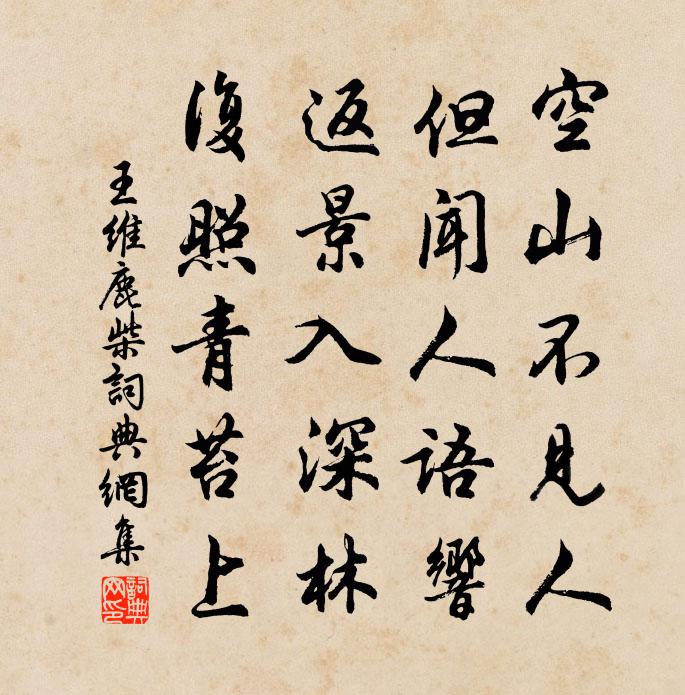 空山不見人
但聞人語響
返景入深林
復照青苔上
王維鹿柴詞典網集
詞典網印